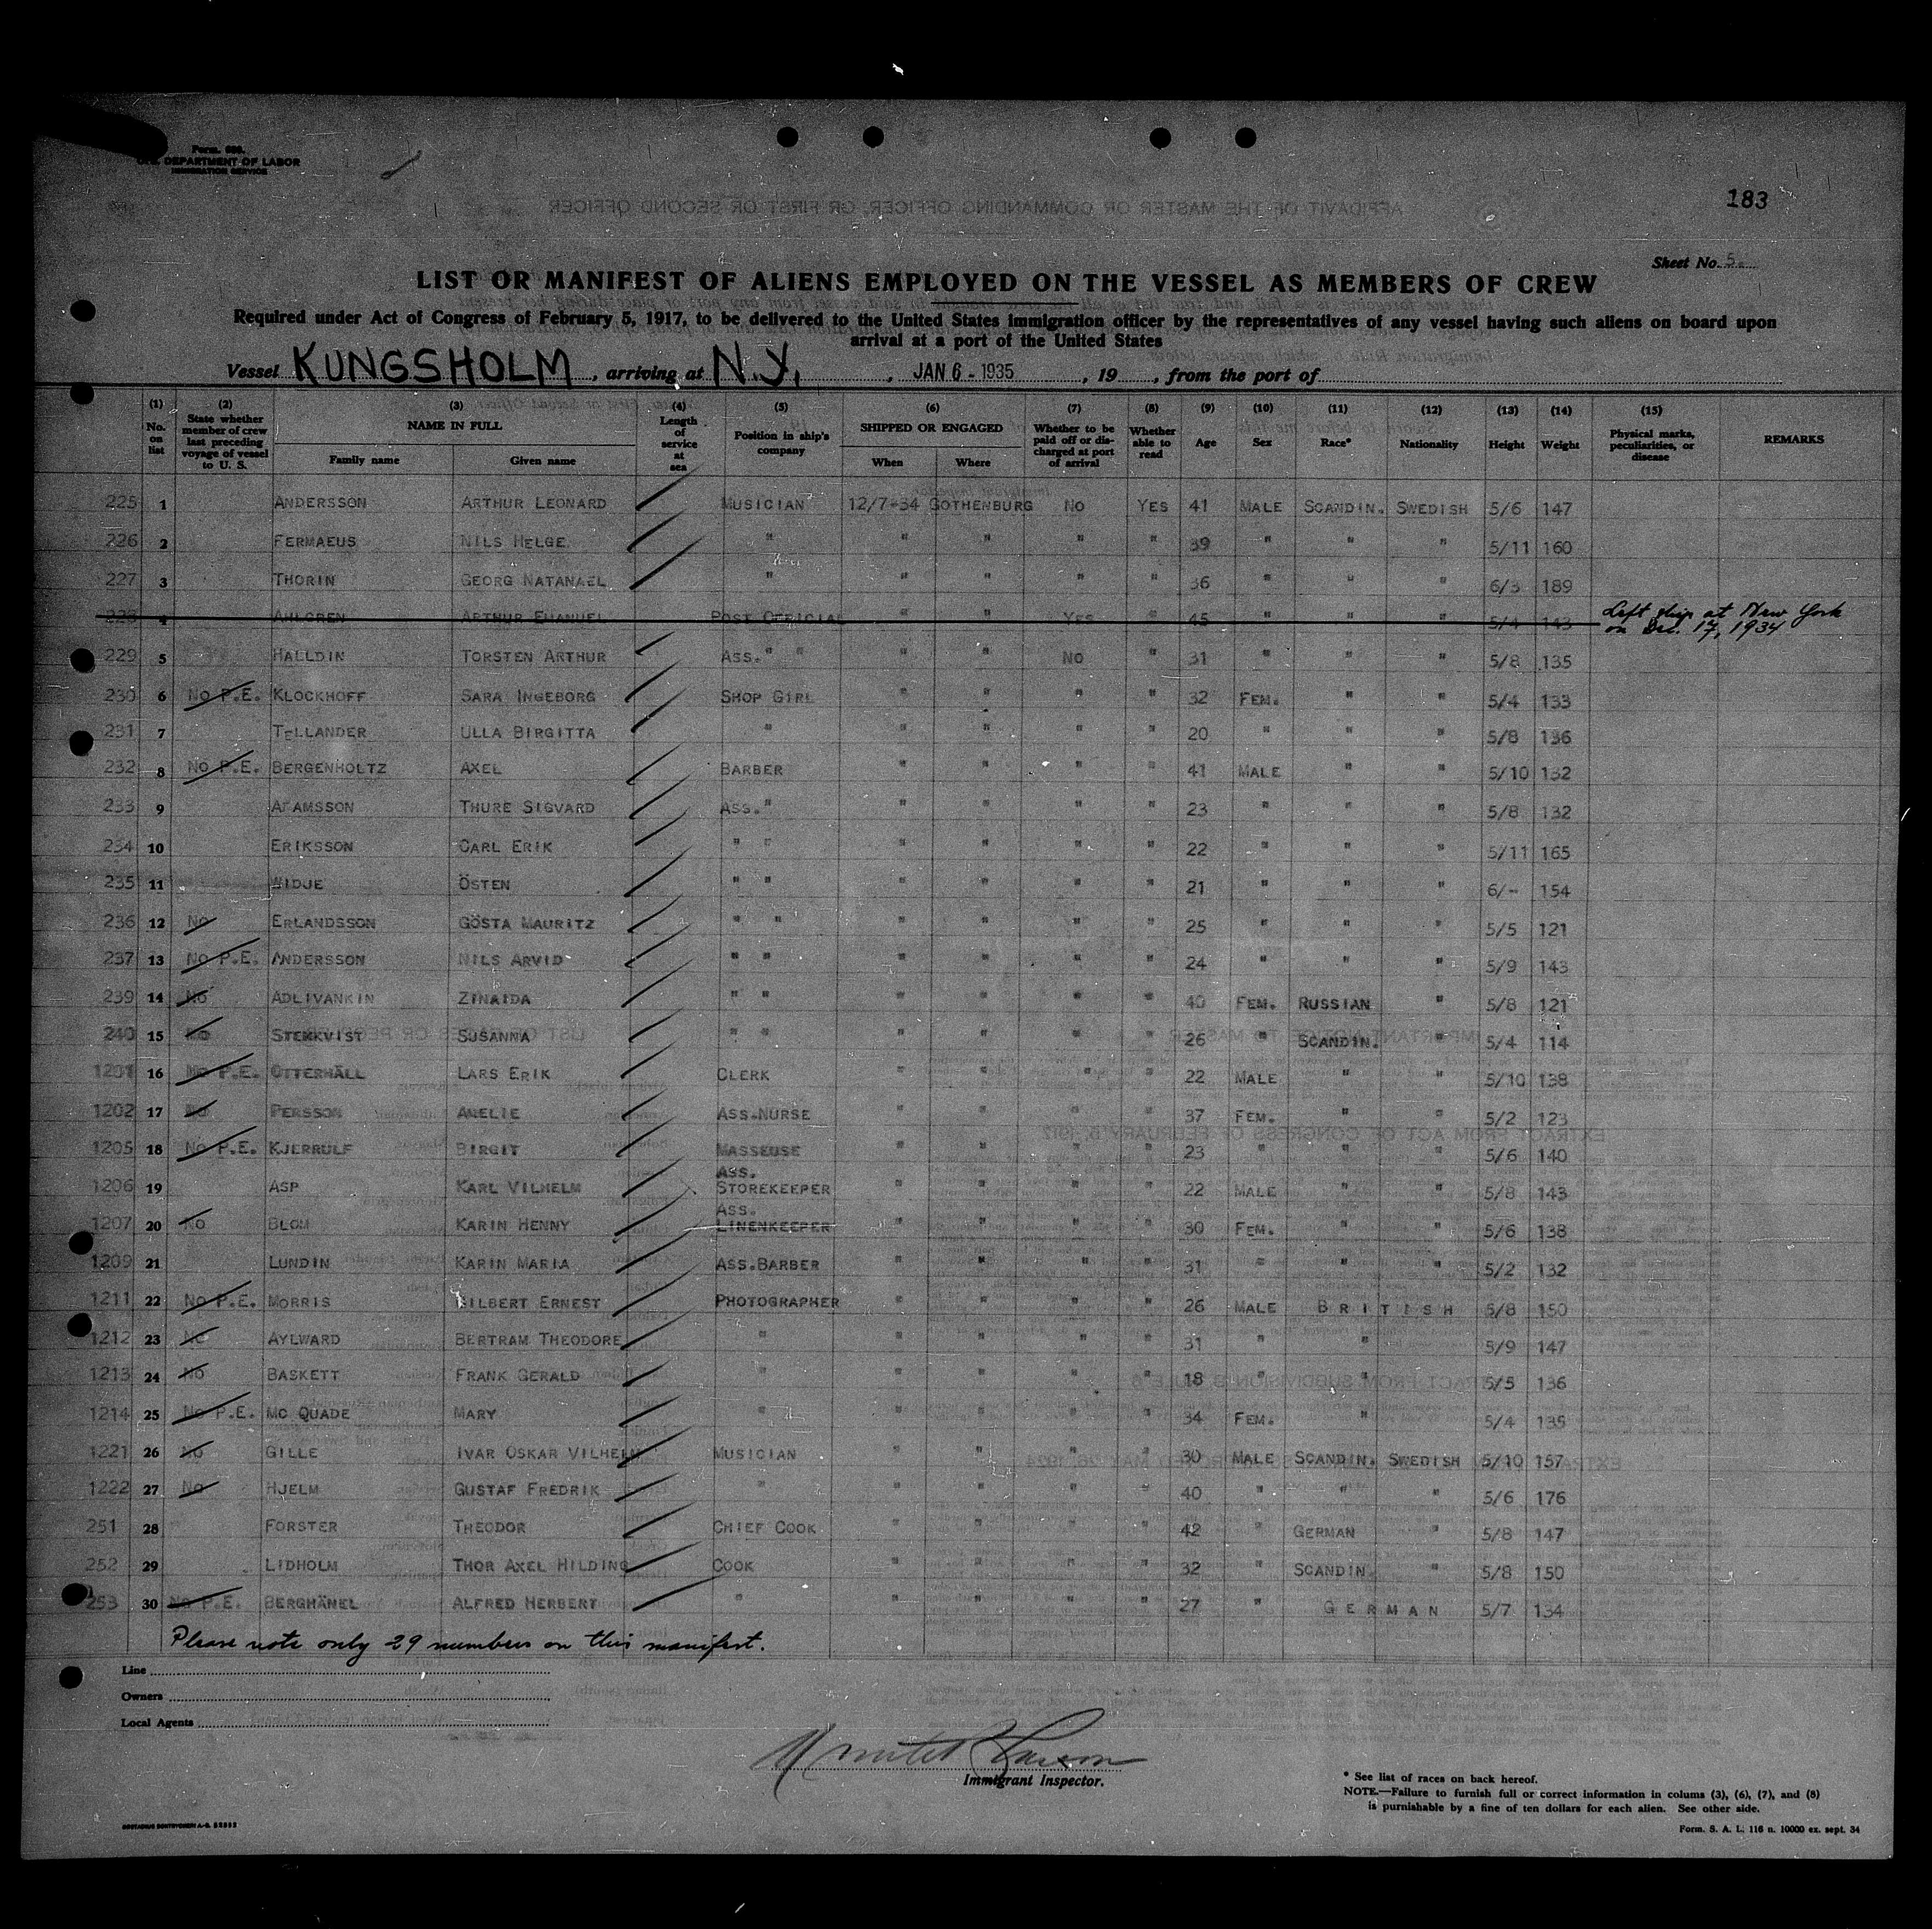 Form. 680.
U.S. DEPARTMENT OF LABOR
IMMIGRATION SERVICE
183
Sheet No. 5.
LIST OR MANIFEST OF ALIENS EMPLOYED ON THE VESSEL AS MEMBERS OF CREW
Required under Act of Congress of February 5, 1917, to be delivered to the United States immigration officer by the representatives of any vessel having such aliens on board upon
arrival at a port of the United States
Vessel KUNGSHOLM, arriving at N.Y., JAN 6 - 1935, 19, from the port of
(1) No. on list (2) State whether member of crew last preceding voyage of vessel to U. S. (3) NAME IN FULL Family name Given name (4) Length of service at sea (5) Position in ship's company (6) SHIPPED OR ENGAGED When Where (7) Whether to be paid off or discharged at port of arrival (8) Whether able to read (9) Age (10) Sex (11) Race* (12) Nationality (13) Height (14) Weight (15) Physical marks, peculiarities, or disease REMARKS
225 1 ANDERSSON ARTHUR LEONARD MUSICIAN 12/7-34 GOTHENBURG NO YES 41 MALE SCANDIN. SWEDISH 5/6 147
226 2 FERMAEUS NILS HELGE " " " " " 39 " " " 5/11 160
227 3 THORIN GEORG NATANAEL " " " " " 36 " " " 6/3 189
228 4 AHLGREN ARTHUR EMANUEL POST OFFICIAL " " YES " 45 " " " 5/4 143 Left ship at New York on Dec. 17, 1934
229 5 HALLDIN TORSTEN ARTHUR ASS. " " " " NO " 31 " " " 5/8 135
230 6 NO P.E. KLOCKHOFF SARA INGEBORG SHOP GIRL " " " " 32 FEM. " " 5/4 133
231 7 TELLANDER ULLA BIRGITTA " " " " " 20 " " " 5/8 136
232 8 NO P.E. BERGENHOLTZ AXEL BARBER " " " " 41 MALE " " 5/10 132
233 9 ADAMSSON THURE SIGVARD ASS. " " " " " 23 " " " 5/8 132
234 10 ERIKSSON CARL ERIK " " " " " " 22 " " " 5/11 165
235 11 WIDJE ÖSTEN " " " " " " 21 " " " 6/- 154
236 12 NO ERLANDSSON GÖSTA MAURITZ " " " " " " 25 " " " 5/5 121
237 13 NO P.E. ANDERSSON NILS ARVID " " " " " " 24 " " " 5/9 143
239 14 NO ADLIVANKIN ZINAIDA " " " " " " 40 FEM. RUSSIAN " 5/8 121
240 15 NO STENKVIST SUSANNA " " " " " " 26 " SCANDIN. " 5/4 114
1201 16 NO P.E. OTTERHÄLL LARS ERIK CLERK " " " " 22 MALE " " 5/10 138
1202 17 NO PERSSON AMELIE ASS.NURSE " " " " 37 FEM. " " 5/2 123
1205 18 NO P.E. KJERRULF BIRGIT MASSEUSE " " " " 23 " " " 5/6 140
1206 19 ASP KARL VILHELM ASS. STOREKEEPER " " " " 22 MALE " " 5/8 143
1207 20 NO BLOM KARIN HENNY ASS. LINENKEEPER " " " " 30 FEM. " " 5/6 138
1209 21 LUNDIN KARIN MARIA ASS.BARBER " " " " 31 " " " 5/2 132
1211 22 NO P.E. MORRIS GILBERT ERNEST PHOTOGRAPHER " " " " 26 MALE BRITISH 5/8 150
1212 23 NO AYLWARD BERTRAM THEODORE " " " " " 31 " " 5/9 147
1213 24 NO BASKETT FRANK GERALD " " " " " 18 " " 5/5 136
1214 25 NO P.E. MC QUADE MARY " " " " " 34 FEM. " 5/4 135
1221 26 NO GILLE IVAR OSKAR VILHELM MUSICIAN " " " " 30 MALE SCANDIN. SWEDISH 5/10 157
1222 27 NO HJELM GUSTAF FREDRIK " " " " " 40 " " " 5/6 176
251 28 FORSTER THEODOR CHIEF COOK " " " " 42 " GERMAN " 5/8 147
252 29 LIDHOLM THOR AXEL HILDING COOK " " " " 32 " SCANDIN. " 5/8 150
253 30 NO P.E. BERGHÄNEL ALFRED HERBERT " " " " " 27 " GERMAN 5/7 134
Please note only 29 numbers on this manifest.
Line
Owners
Local Agents
Immigrant Inspector.
* See list of races on back hereof.
NOTE.—Failure to furnish full or correct information in colums (3), (6), (7), and (8)
is purnishable by a fine of ten dollars for each alien. See other side.
Form. S. A. L. 116 n. 10000 ex. sept. 34